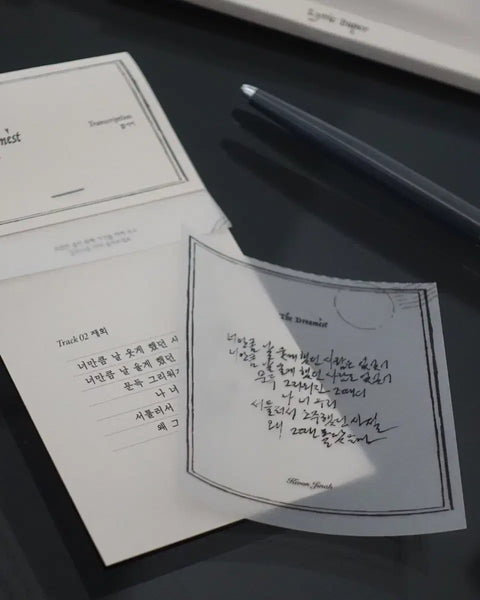 Lyric Paper
mest
Transcription
필사지
Track 02 재회
너만큼 날 웃게 했던 사
너만큼 날 울게 했던
문득 그리워
나 너
서툴러서
왜 그
The Dreamest
너만큼 날 웃게 했던 사람은 없었기
너만큼 날 울게 했던 사람도 없었기
문득 그리워진 그때의
나 너 우리
서툴러서 소중했던 사실
왜 그때는 몰랐을까
Kwon Jinah